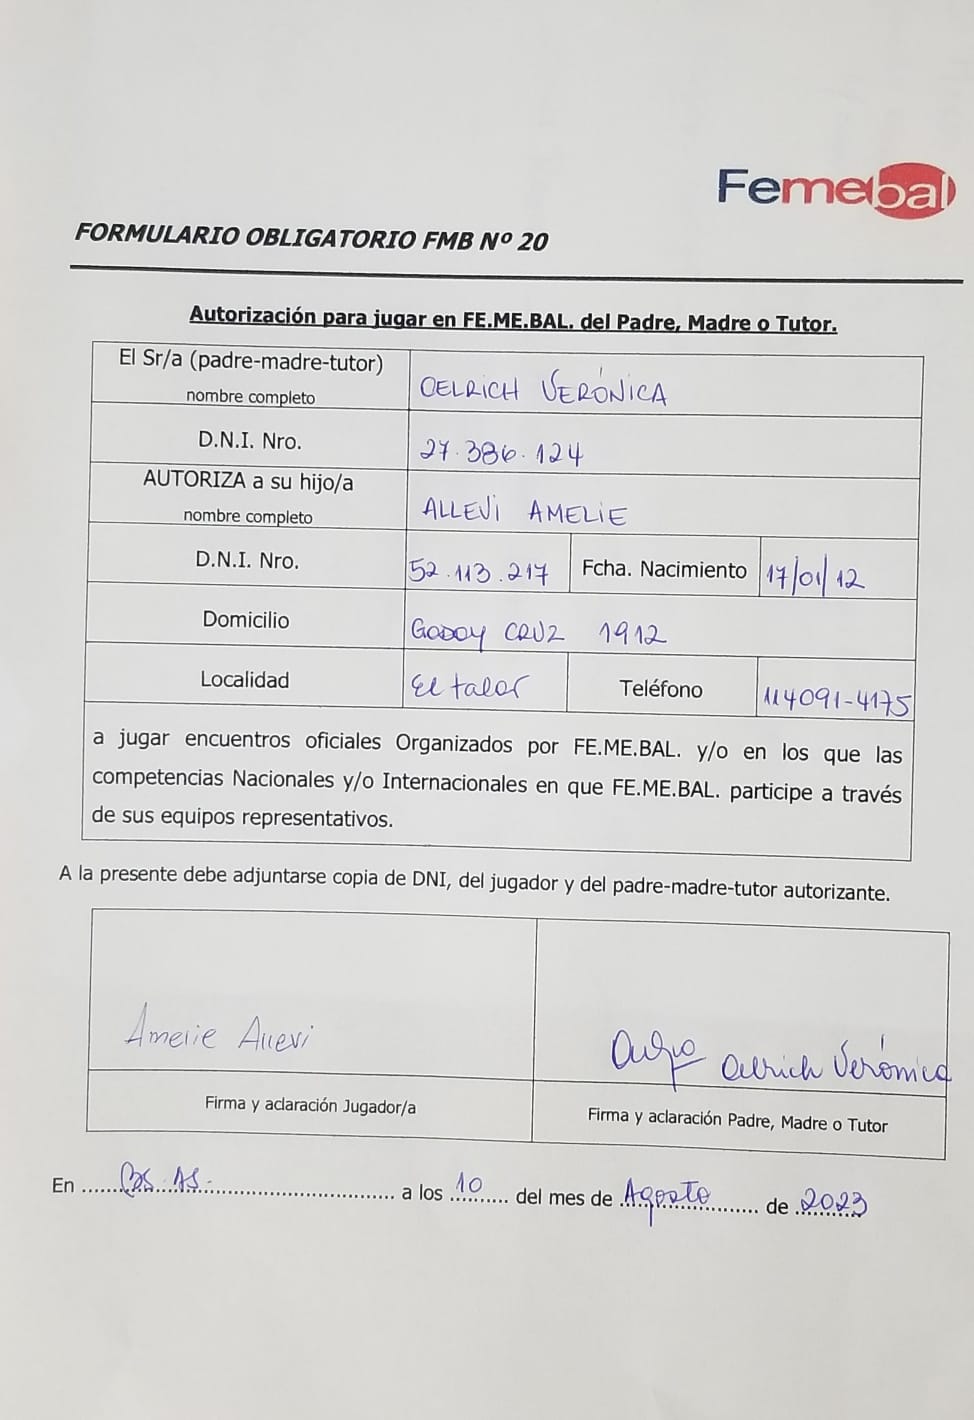 Femebal
FORMULARIO OBLIGATORIO FMB Nº 20
Autorización para jugar en FE.ME.BAL. del Padre, Madre o Tutor.
El Sr/a (padre-madre-tutor)
nombre completo
OELRICH VERÓNICA
D.N.I. Nro.
27.386.124
AUTORIZA a su hijo/a
nombre completo
ALLEVI AMELIE
D.N.I. Nro.
52.113.217
Fcha. Nacimiento
17/01/12
Domicilio
GODOY CRUZ 1912
Localidad
El talar
Teléfono
114091-4175
a jugar encuentros oficiales Organizados por FE.ME.BAL. y/o en los que las
competencias Nacionales y/o Internacionales en que FE.ME.BAL. participe a través
de sus equipos representativos.
A la presente debe adjuntarse copia de DNI, del jugador y del padre-madre-tutor autorizante.
Amelie Allevi
Oelrich Verónica
Firma y aclaración Jugador/a
Firma y aclaración Padre, Madre o Tutor
En Bs. As. a los 10 del mes de Agosto de 2023